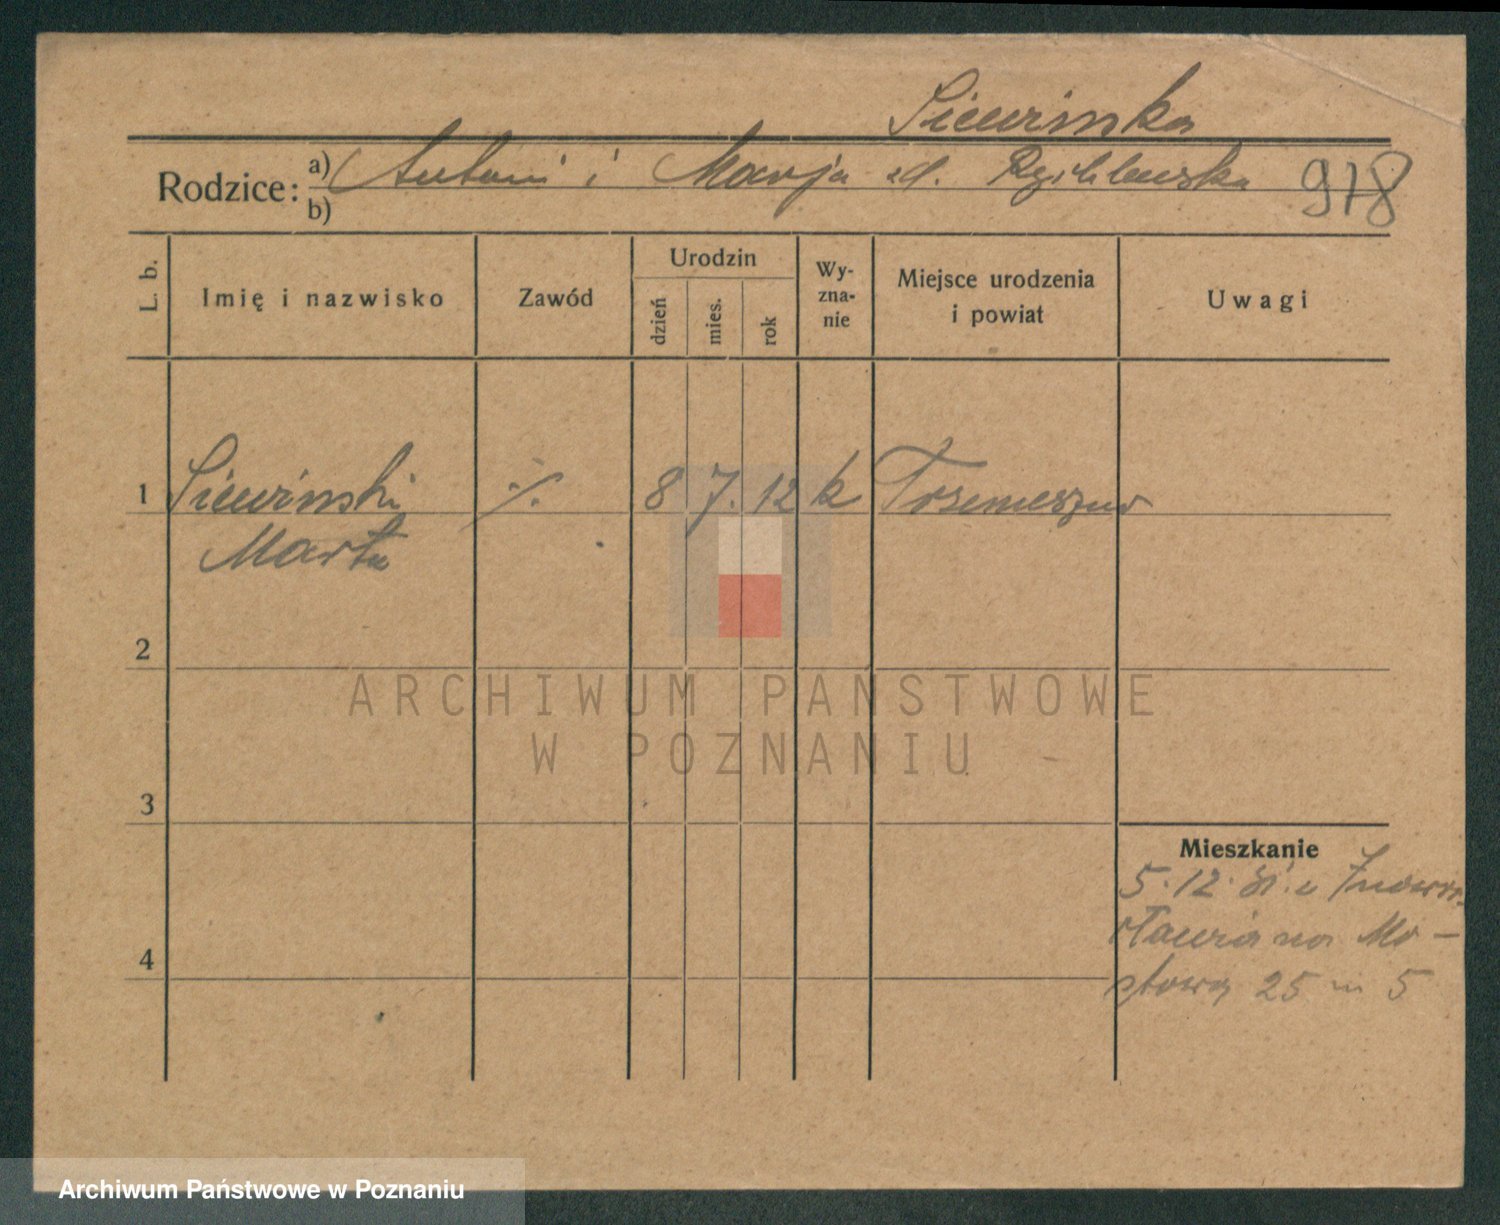 Siewinska
Rodzice: a) Antoni i Marja zd. Rychlewska 978
b)
L. b. Imię i nazwisko Zawód Urodzin dzień mies. rok Wy-zna-nie Miejsce urodzenia i powiat Uwagi
1 Siewinski ·/. 8 7. 12 k Trzemeszno
Marta
2
ARCHIWUM PAŃSTWOWE
W POZNANIU
3
Mieszkanie
5.12. z Inowro-
cławia na Mo-
stową 25 m 5
4
Archiwum Państwowe w Poznaniu